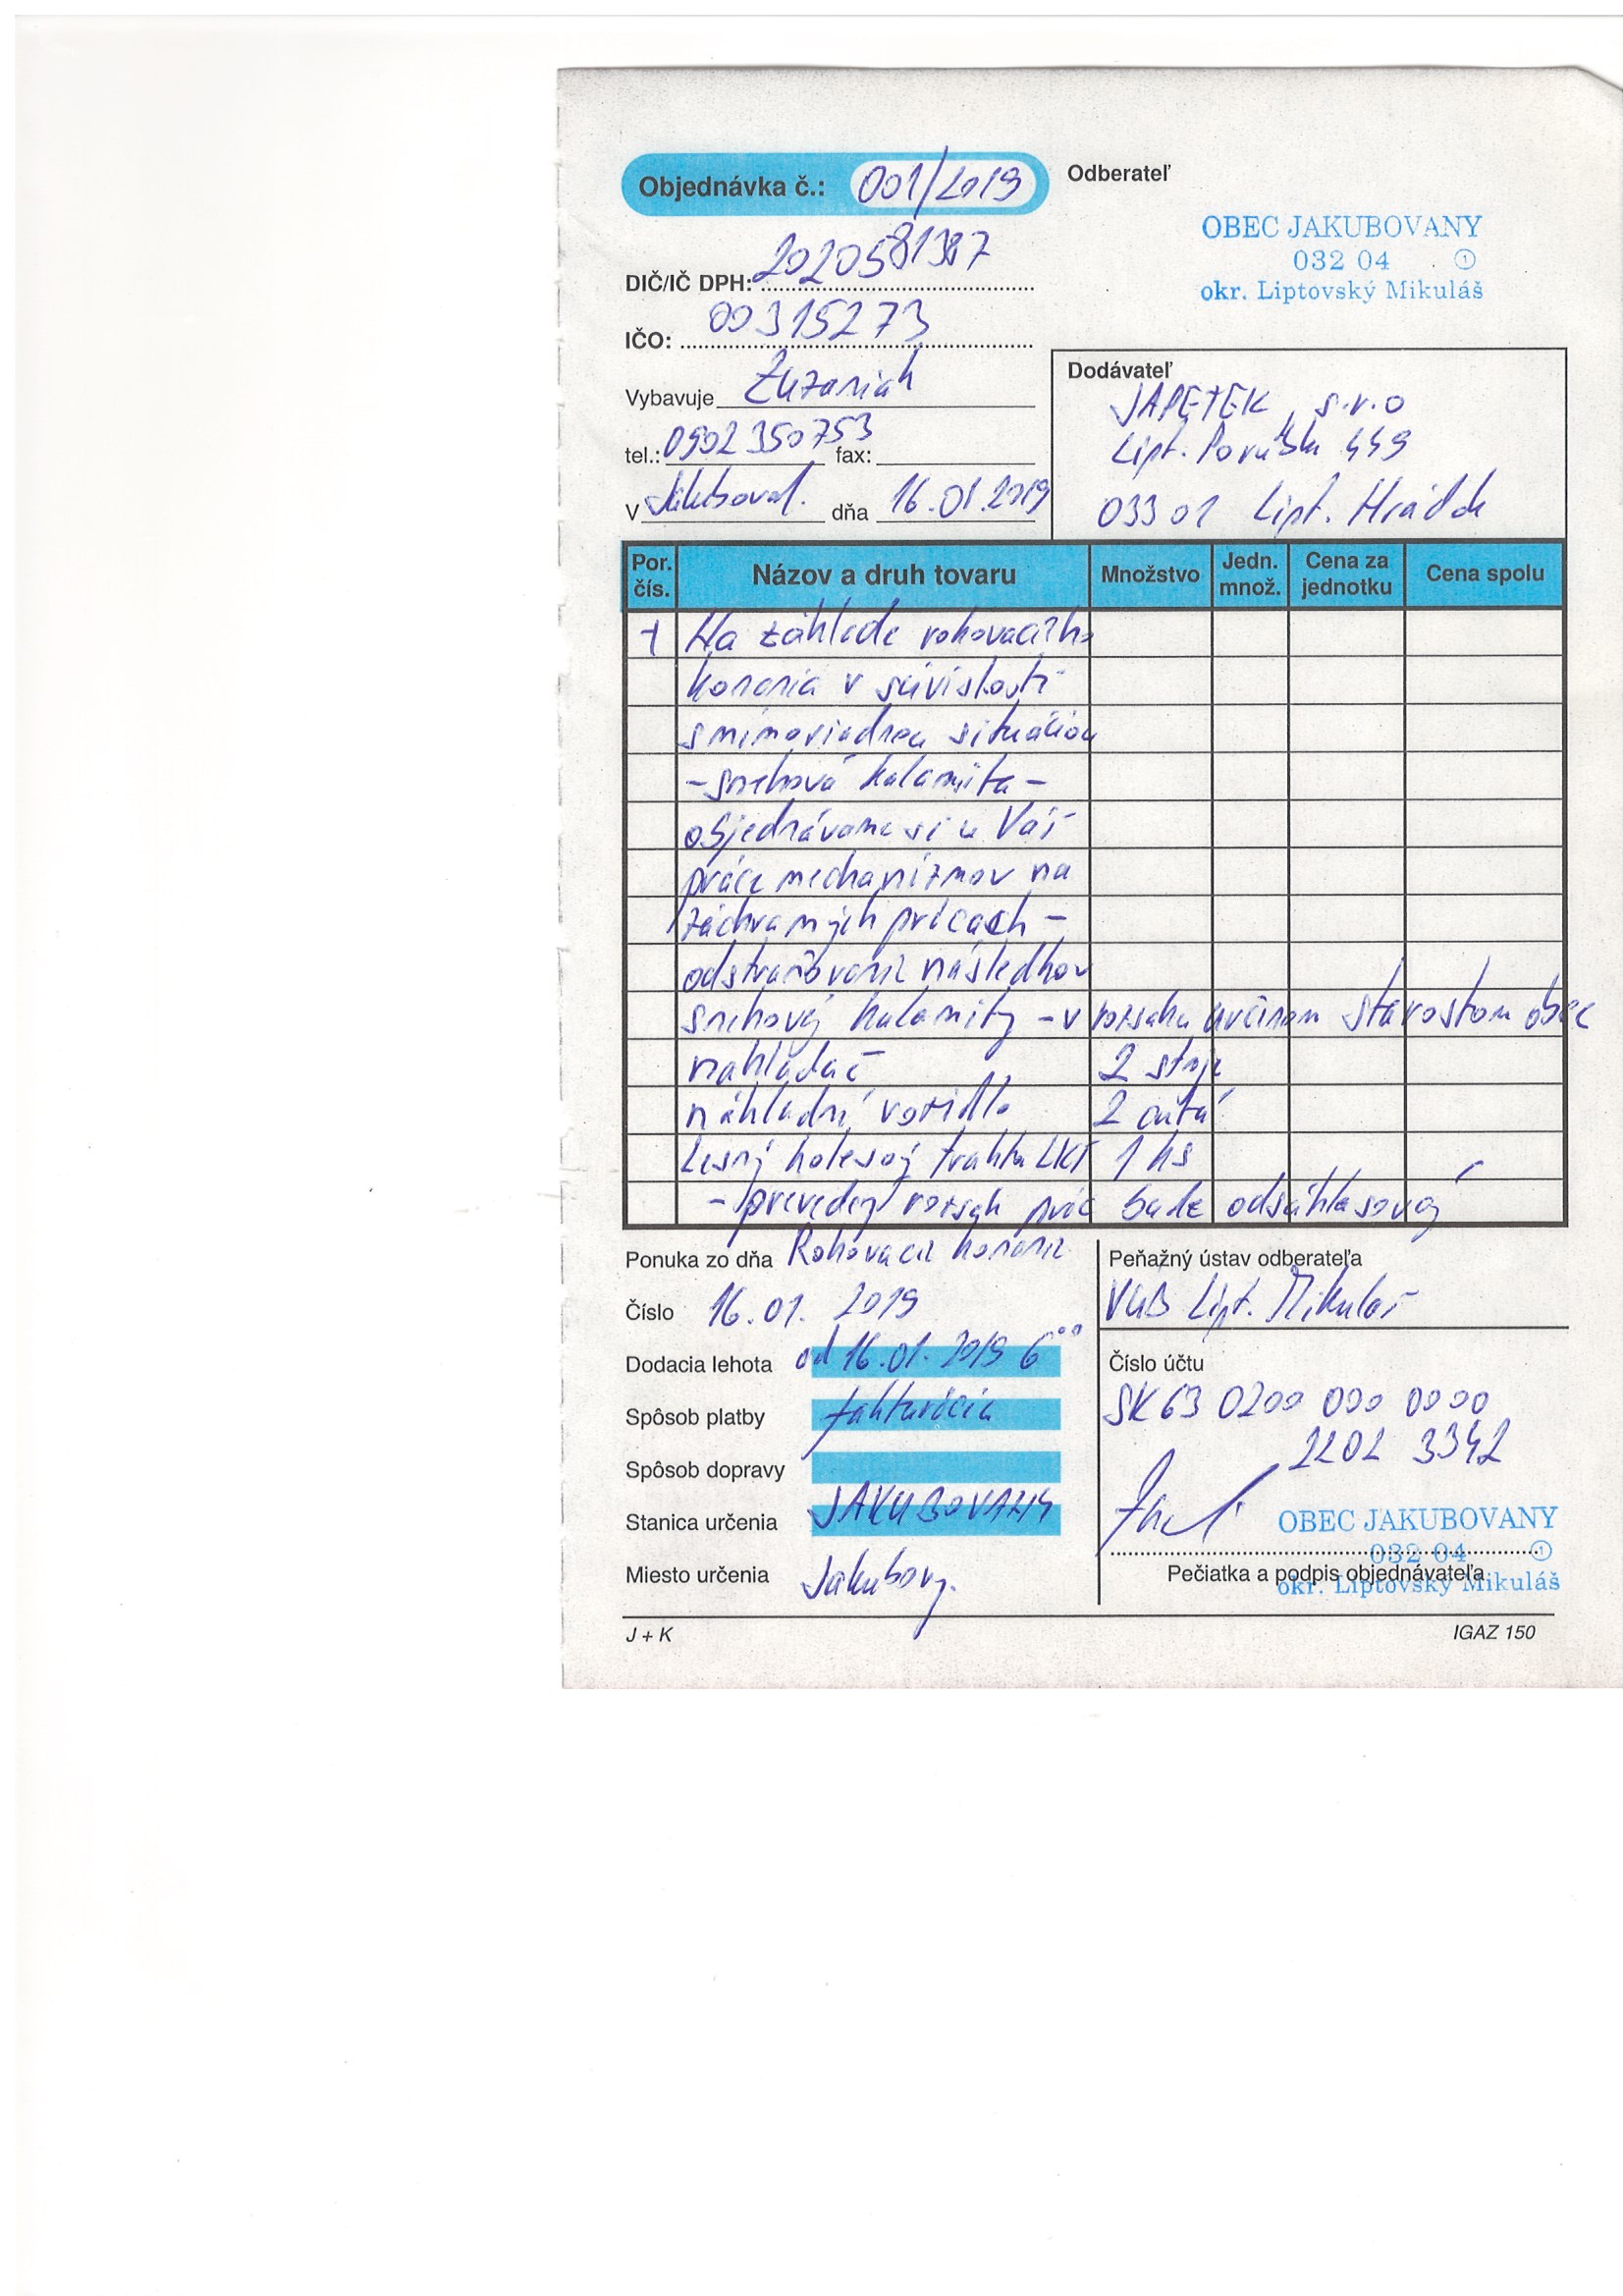 Objednávka č.: 001/2019
Odberateľ
OBEC JAKUBOVANY
032 04 1
okr. Liptovský Mikuláš
DIČ/IČ DPH: 2020581387
IČO: 00315273
Vybavuje Žuzaniak
tel.: 0902 350 753 fax:
V Jakubovan. dňa 16.01.2019
Dodávateľ
JAPETEK, s.r.o
Lipt. Porúbka 449
033 01 Lipt. Hrádok
Por. čís. Názov a druh tovaru Množstvo Jedn. množ. Cena za jednotku Cena spolu
1 Na základe rokovacieho
konania v súvislosti
s mimoriadnou situáciou
- snehová kalamita -
objednávame si u Vás
práce mechanizmov na
záchranných prácach -
odstraňovanie následkov
snehovej kalamity - v rozsahu určenom starostom obce
nakladač 2 stroje
nákladné vozidlo 2 autá
Lesný kolesový traktor LKT 1 ks
- prevedený rozsah prác bude odsúhlasovaný
Ponuka zo dňa Rokovacie konanie
Číslo 16.01. 2019
Dodacia lehota od 16.01. 2019 6°°
Spôsob platby fakturácia
Spôsob dopravy
Stanica určenia JAKUBOVANY
Miesto určenia Jakubovany.
Peňažný ústav odberateľa
VÚB Lipt. Mikuláš
Číslo účtu
SK63 0200 000 0000
2202 3342
OBEC JAKUBOVANY
032 04 1
okr. Liptovský Mikuláš
Pečiatka a podpis objednávateľa
J + K
IGAZ 150